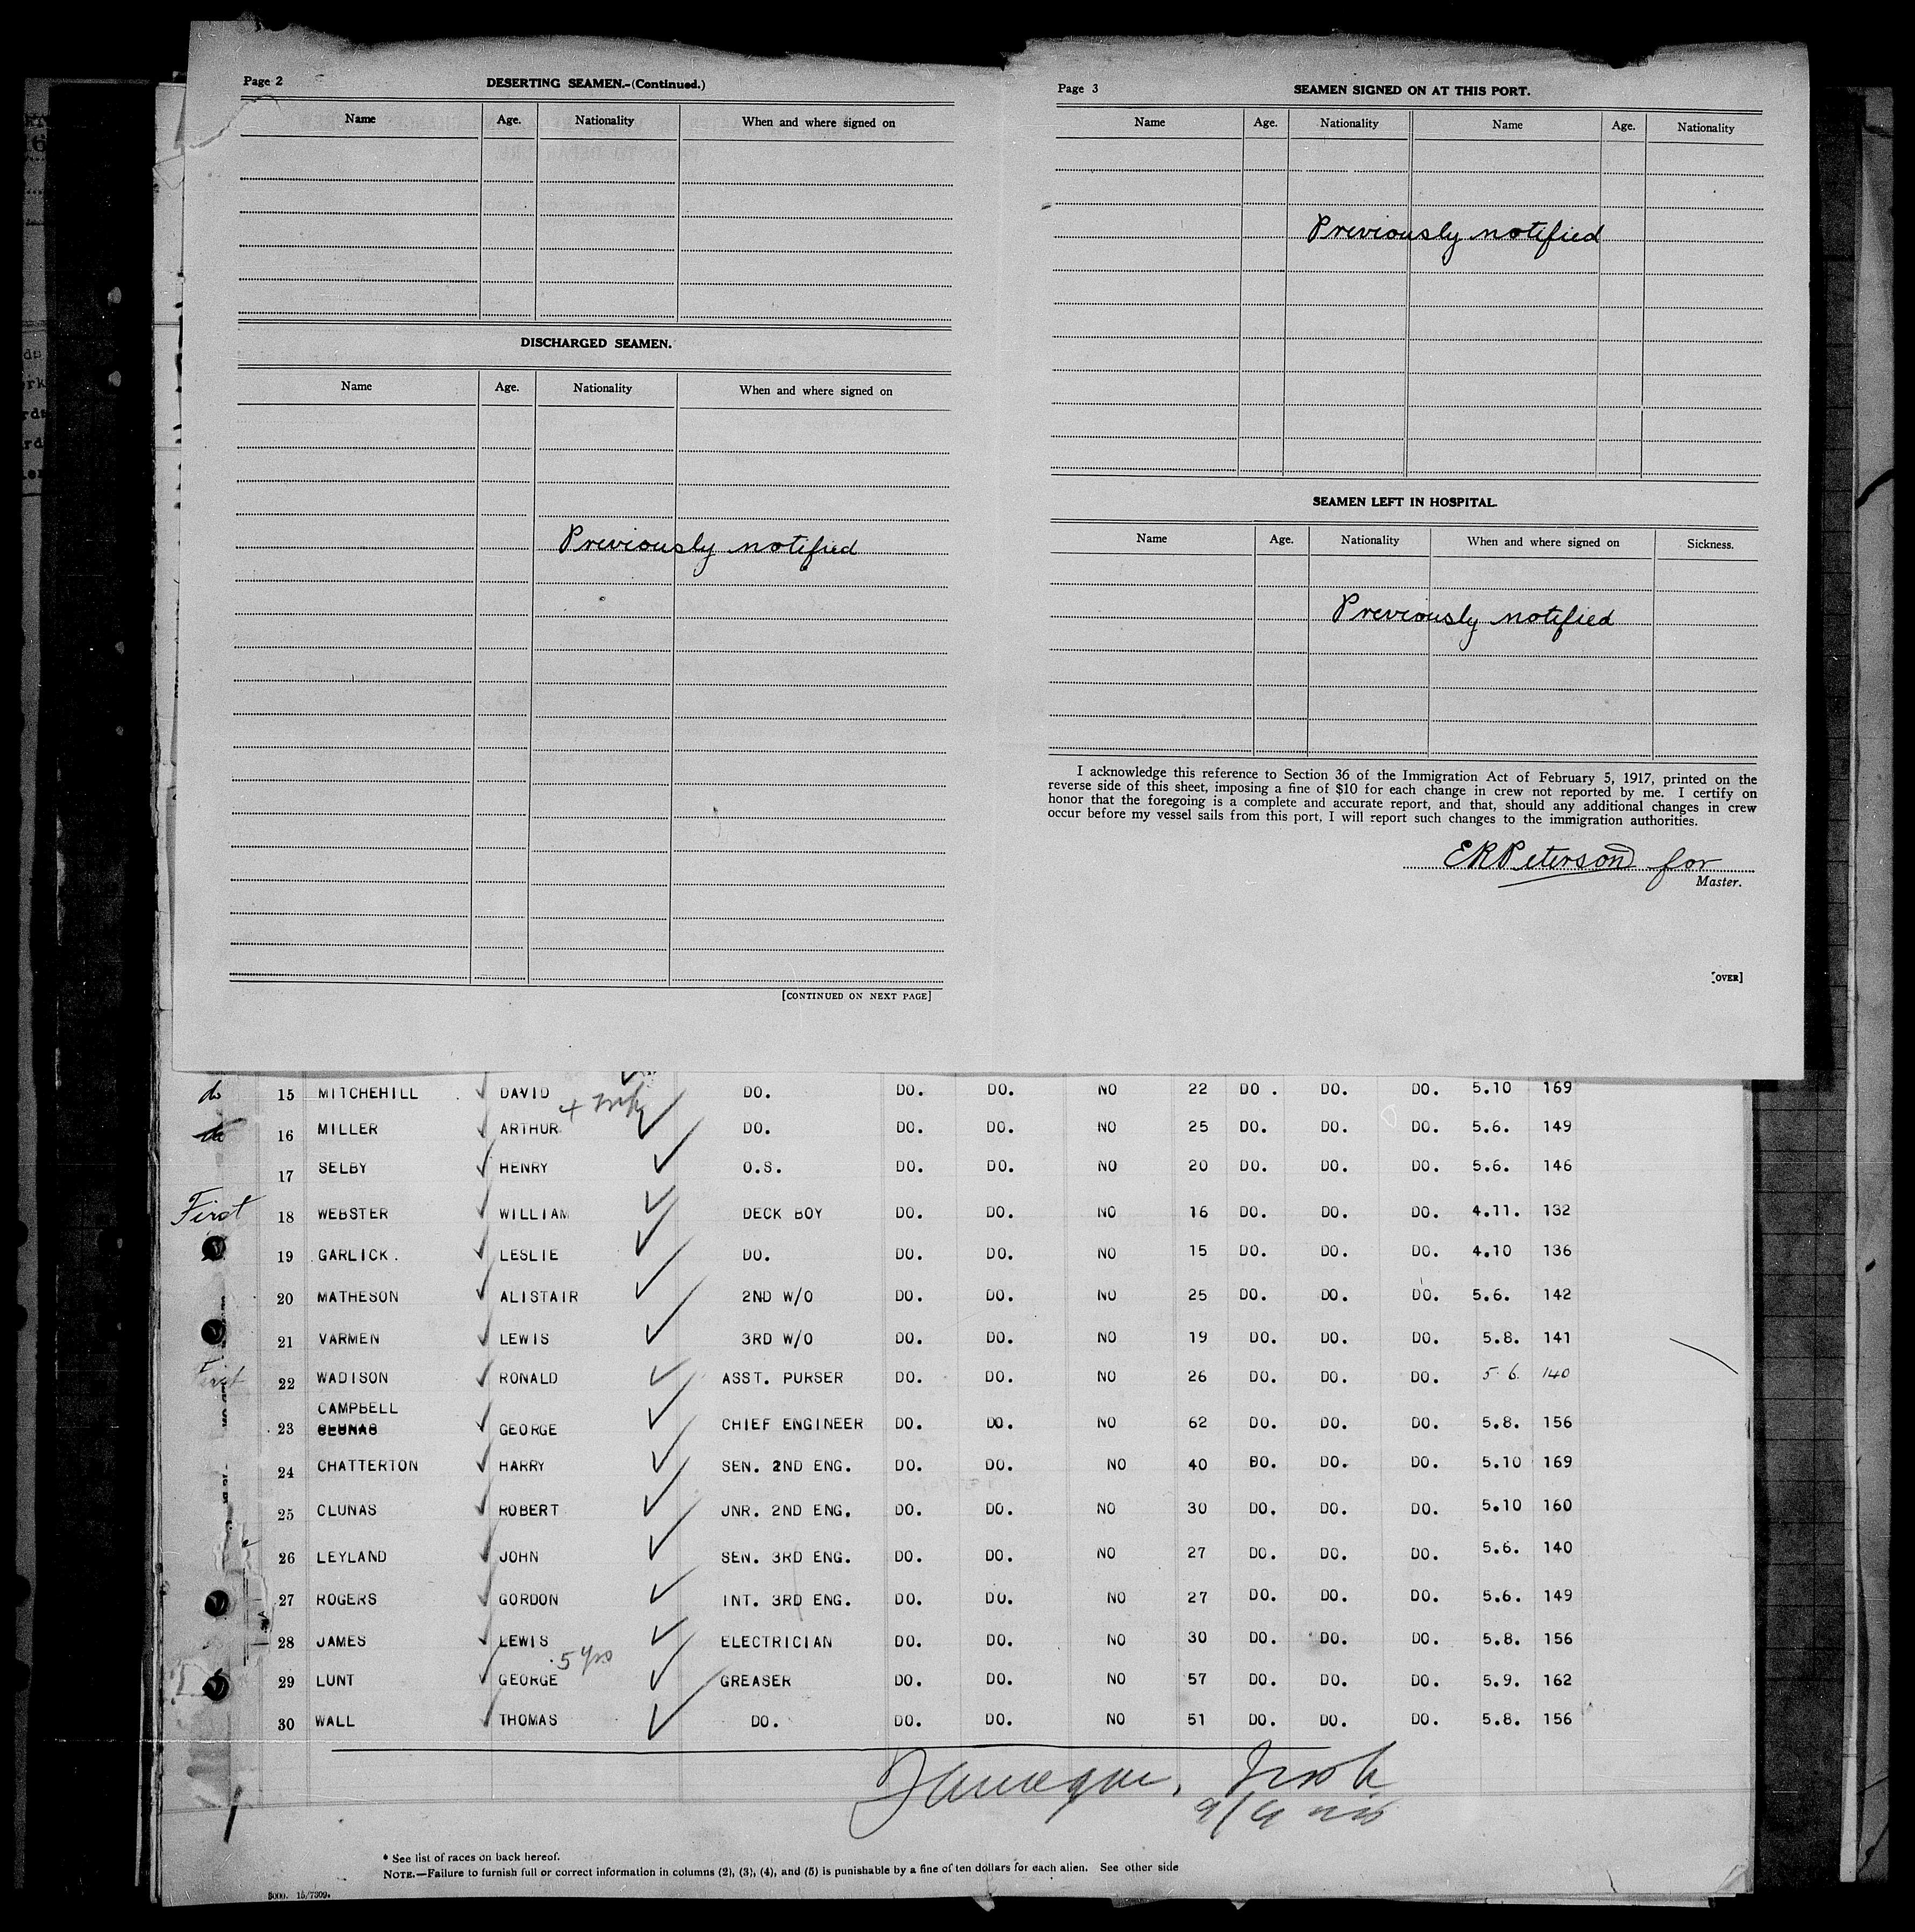 Page 2
DESERTING SEAMEN.-(Continued.)
Name Age. Nationality When and where signed on
DISCHARGED SEAMEN.
Name Age. Nationality When and where signed on
Previously notified
[CONTINUED ON NEXT PAGE]
Page 3
SEAMEN SIGNED ON AT THIS PORT.
Name Age. Nationality Name Age. Nationality
Previously notified
SEAMEN LEFT IN HOSPITAL.
Name Age. Nationality When and where signed on Sickness.
Previously notified
I acknowledge this reference to Section 36 of the Immigration Act of February 5, 1917, printed on the
reverse side of this sheet, imposing a fine of $10 for each change in crew not reported by me. I certify on
honor that the foregoing is a complete and accurate report, and that, should any additional changes in crew
occur before my vessel sails from this port, I will report such changes to the immigration authorities.
ERPeterson for
Master.
[OVER]
do 15 MITCHEHILL DAVID DO. DO. DO. NO 22 DO. DO. DO. 5.10 169
16 MILLER ARTHUR DO. DO. DO. NO 25 DO. DO. DO. 5.6. 149
17 SELBY HENRY O.S. DO. DO. NO 20 DO. DO. DO. 5.6. 146
First 18 WEBSTER WILLIAM DECK BOY DO. DO. NO 16 DO. DO. DO. 4.11. 132
19 GARLICK. LESLIE DO. DO. DO. NO 15 DO. DO. DO. 4.10 136
20 MATHESON ALISTAIR 2ND W/O DO. DO. NO 25 DO. DO. DO. 5.6. 142
21 VARMEN LEWIS 3RD W/O DO. DO. NO 19 DO. DO. DO. 5.8. 141
First 22 WADISON RONALD ASST. PURSER DO. DO. NO 26 DO. DO. DO. 5 6. 140
CAMPBELL
23 CLUNAS GEORGE CHIEF ENGINEER DO. DO. NO 62 DO. DO. DO. 5.8. 156
24 CHATTERTON HARRY SEN. 2ND ENG. DO. DO. NO 40 DO. DO. DO. 5.10 169
25 CLUNAS ROBERT JNR. 2ND ENG. DO. DO. NO 30 DO. DO. DO. 5.10 160
26 LEYLAND JOHN SEN. 3RD ENG. DO. DO. NO 27 DO. DO. DO. 5.6. 140
27 ROGERS GORDON INT. 3RD ENG. DO. DO. NO 27 DO. DO. DO. 5.6. 149
28 JAMES LEWIS ELECTRICIAN DO. DO. NO 30 DO. DO. DO. 5.8. 156
5 yrs
29 LUNT GEORGE GREASER DO. DO. NO 57 DO. DO. DO. 5.9. 162
30 WALL THOMAS DO. DO. DO. NO 51 DO. DO. DO. 5.8. 156
* See list of races on back hereof.
NOTE.—Failure to furnish full or correct information in columns (2), (3), (4), and (5) is punishable by a fine of ten dollars for each alien. See other side
5000. 15/7309.